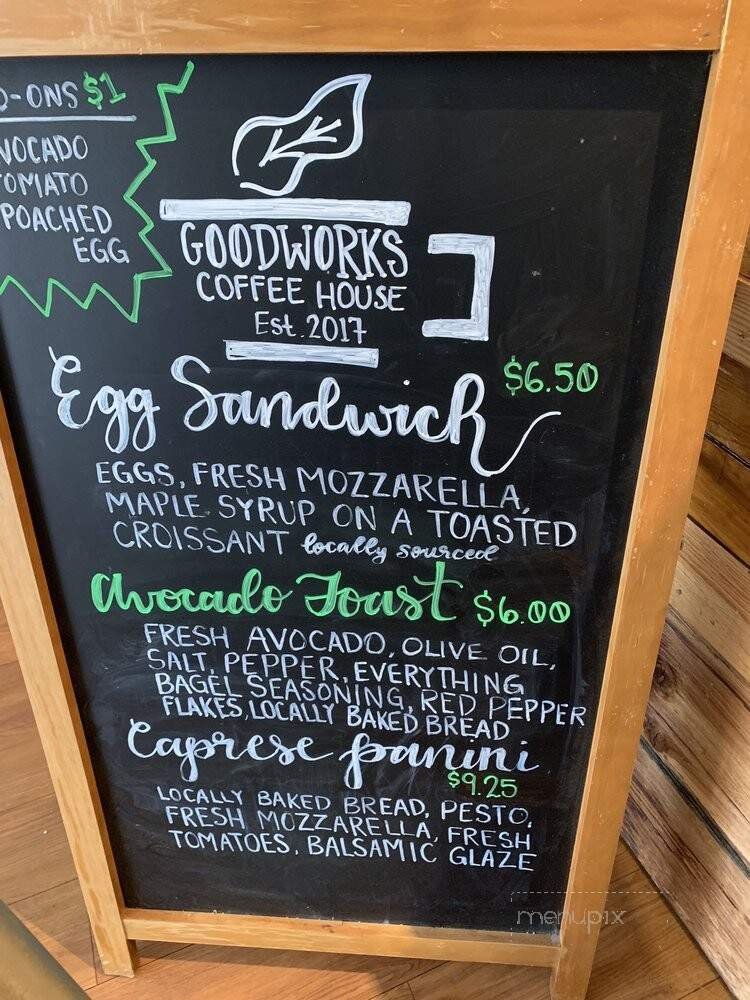 D-ONS $1
VOCADO
TOMATO
POACHED
EGG
GOODWORKS
COFFEE HOUSE
Est. 2017
Egg Sandwich $6.50
EGGS, FRESH MOZZARELLA,
MAPLE SYRUP ON A TOASTED
CROISSANT locally sourced
Avocado Toast $6.00
FRESH AVOCADO, OLIVE OIL,
SALT, PEPPER, EVERYTHING
BAGEL SEASONING, RED PEPPER
FLAKES, LOCALLY BAKED BREAD
Caprese panini
$9.25
LOCALLY BAKED BREAD, PESTO,
FRESH MOZZARELLA, FRESH
TOMATOES, BALSAMIC GLAZE
menupix